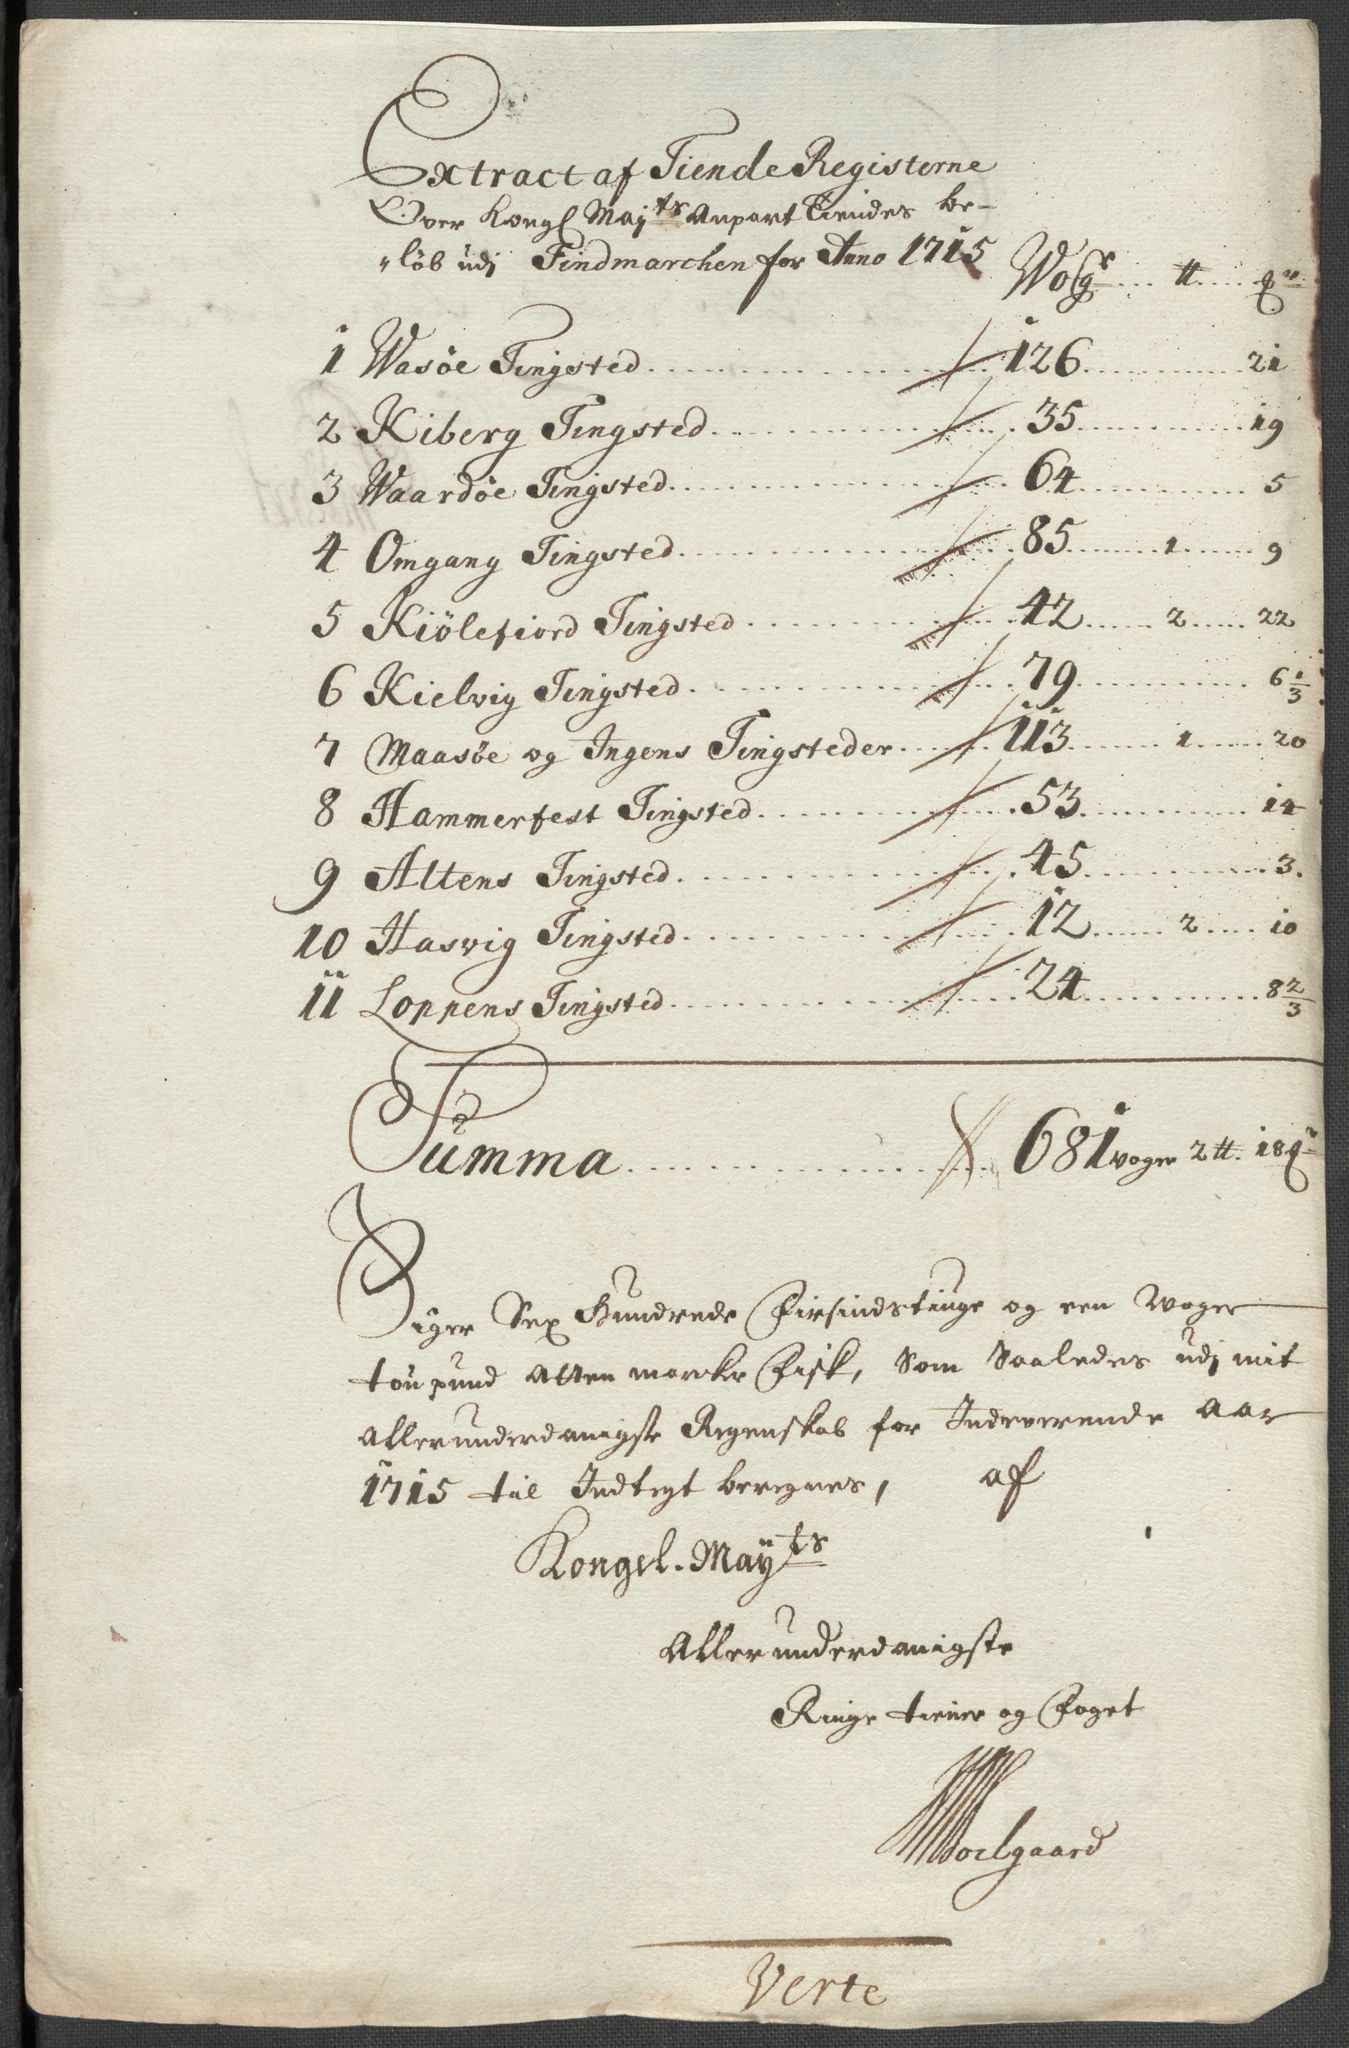 Extract af Tiende Registerne
Over Kongl Mayts Anpart Tiendes be-
„löb udj Findmarchen for Anno 1715
Wog͛ ℔
1 Wasöe Tingsted 126 21
2 Kiberg Tingsted 35 19
3 Waardöe Tingsted 64 5
4 Omgang Tingsted 85 1 9
5 Kiölefiord Tingsted 42 2 22
6 Kielvig Tingsted 79 6 1/3
7 Maasöe og Ingens Tingsteder 113 1 20
8 Hammerfest Tingsted 53 14
9 Altens Tingsted 45 3
10 Hasvig Tingsted 12 2 10
11 Loppens Tingsted 24 8 2/3
Summa 681 voger 2 ℔ 18
Siger Sex Hundrede Firsindstiuge og een Woger
tou pund Atten marcker Fisk, Som Saaledes udj mit
Allerunderdanigste Regenskab for Indeverende Aar
1715 til Indtegt beregnes, af
Kongel. Mayts
Allerunderdanigste
Ringe tiener og Foget
Soelgaard
Verte